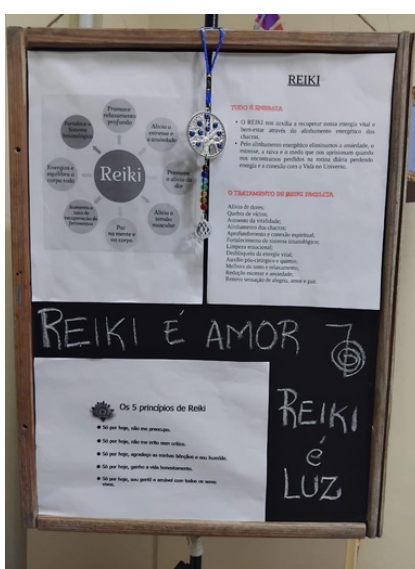 Promove
relaxamento
profundo
Alivia o
estresse e
a ansiedade
Promove
o alívio da
dor
Alivia a
tensão
muscular
Paz
na mente e
no corpo.
Aumenta a
taxa de
recuperação de
ferimentos
Energiza e
equilibra o
corpo todo
Fortalece o
Sistema
Imunológico
Reiki
REIKI
TUDO É ENERGIA
• O REIKI nos auxilia a recuperar nossa energia vital e
bem-estar através do alinhamento energético dos
chacras;
• Pelo alinhamento energético eliminamos a ansiedade, o
estresse, a raiva e o medo que nos aprisionam quando
nos encontramos perdidos na rotina diária perdendo
energia e a conexão com a Vida no Universo.
O TRATAMENTO DE REIKI FACILITA
Alívio de dores;
Quebra de vícios;
Aumento da vitalidade;
Alinhamento dos chacras;
Aprofundamento e conexão espiritual;
Fortalecimento do sistema imunológico;
Limpeza emocional;
Desbloqueio da energia vital;
Auxílio pós-cirúrgico e quimio;
Melhora do sono e relaxamento;
Redução estresse e ansiedade;
sensação de alegria, amor e paz.
REIKI É AMOR
Os 5 princípios de Reiki
• Só por hoje, não me preocupo.
• Só por hoje, não me irrito nem critico.
• Só por hoje, agradeço as minhas bênçãos e sou humilde.
• Só por hoje, ganho a vida honestamente.
• Só por hoje, sou gentil e amável com todos os seres
vivos.
REIKI
é
LUZ